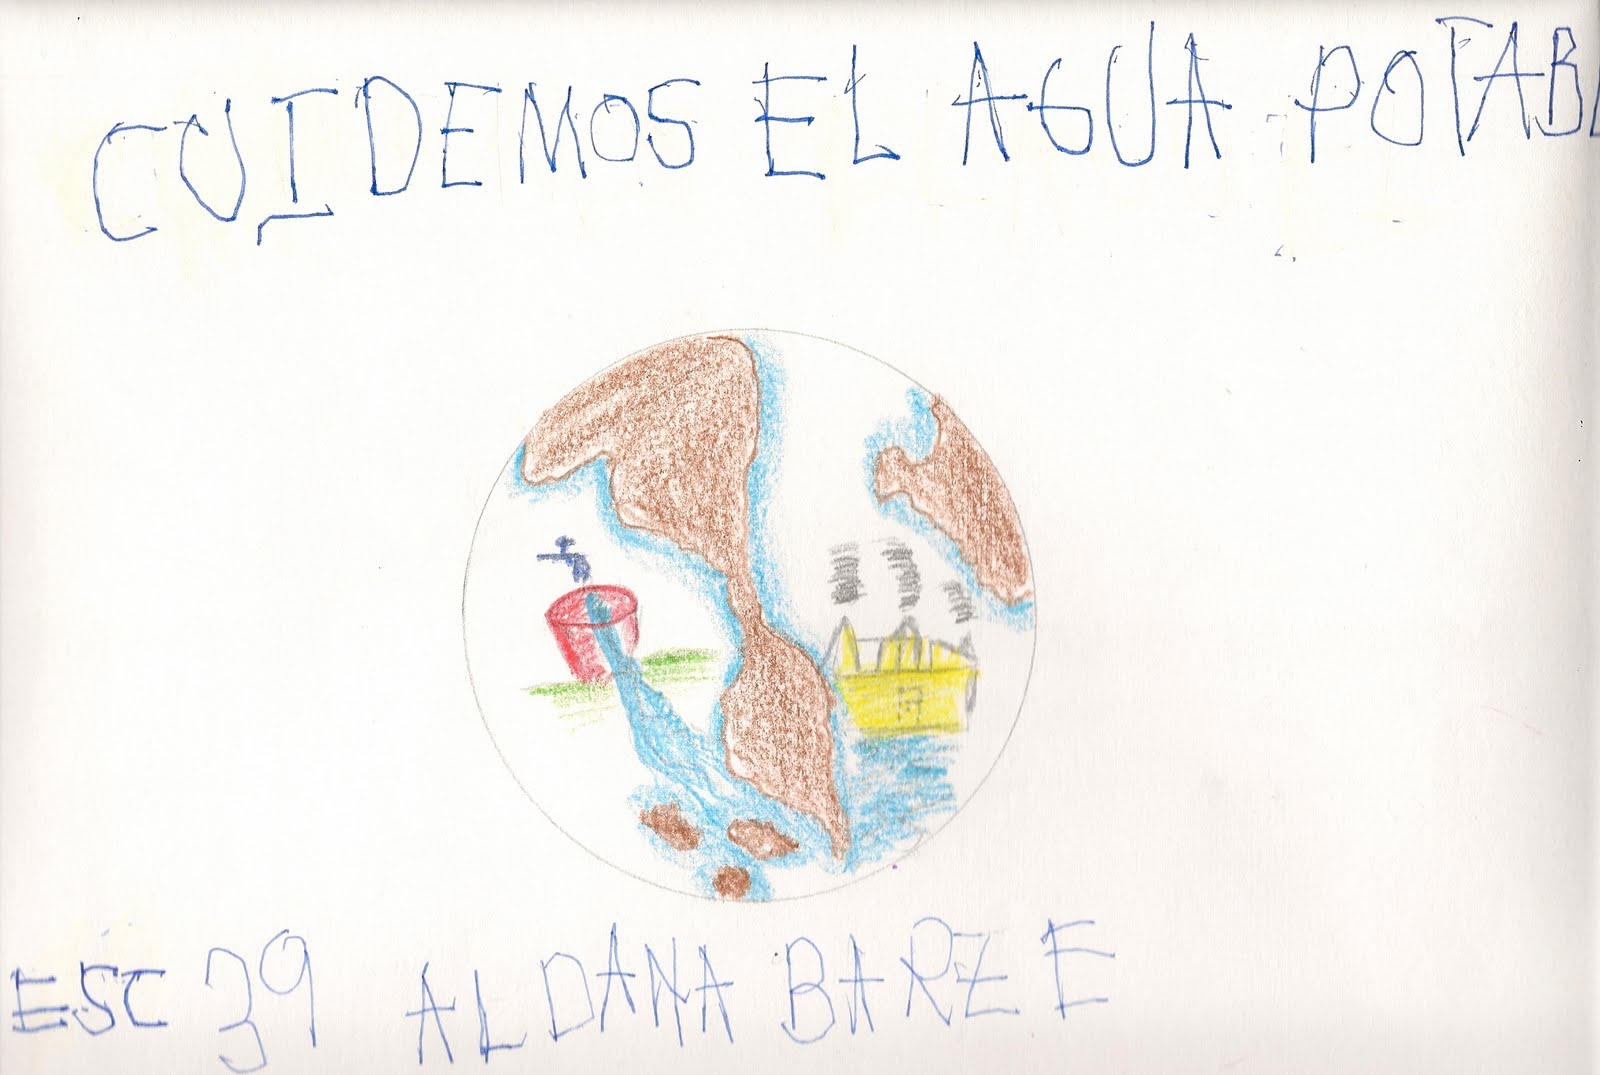 CUIDEMOS EL AGUA POTABL
ESC 39 ALDANA BARZE